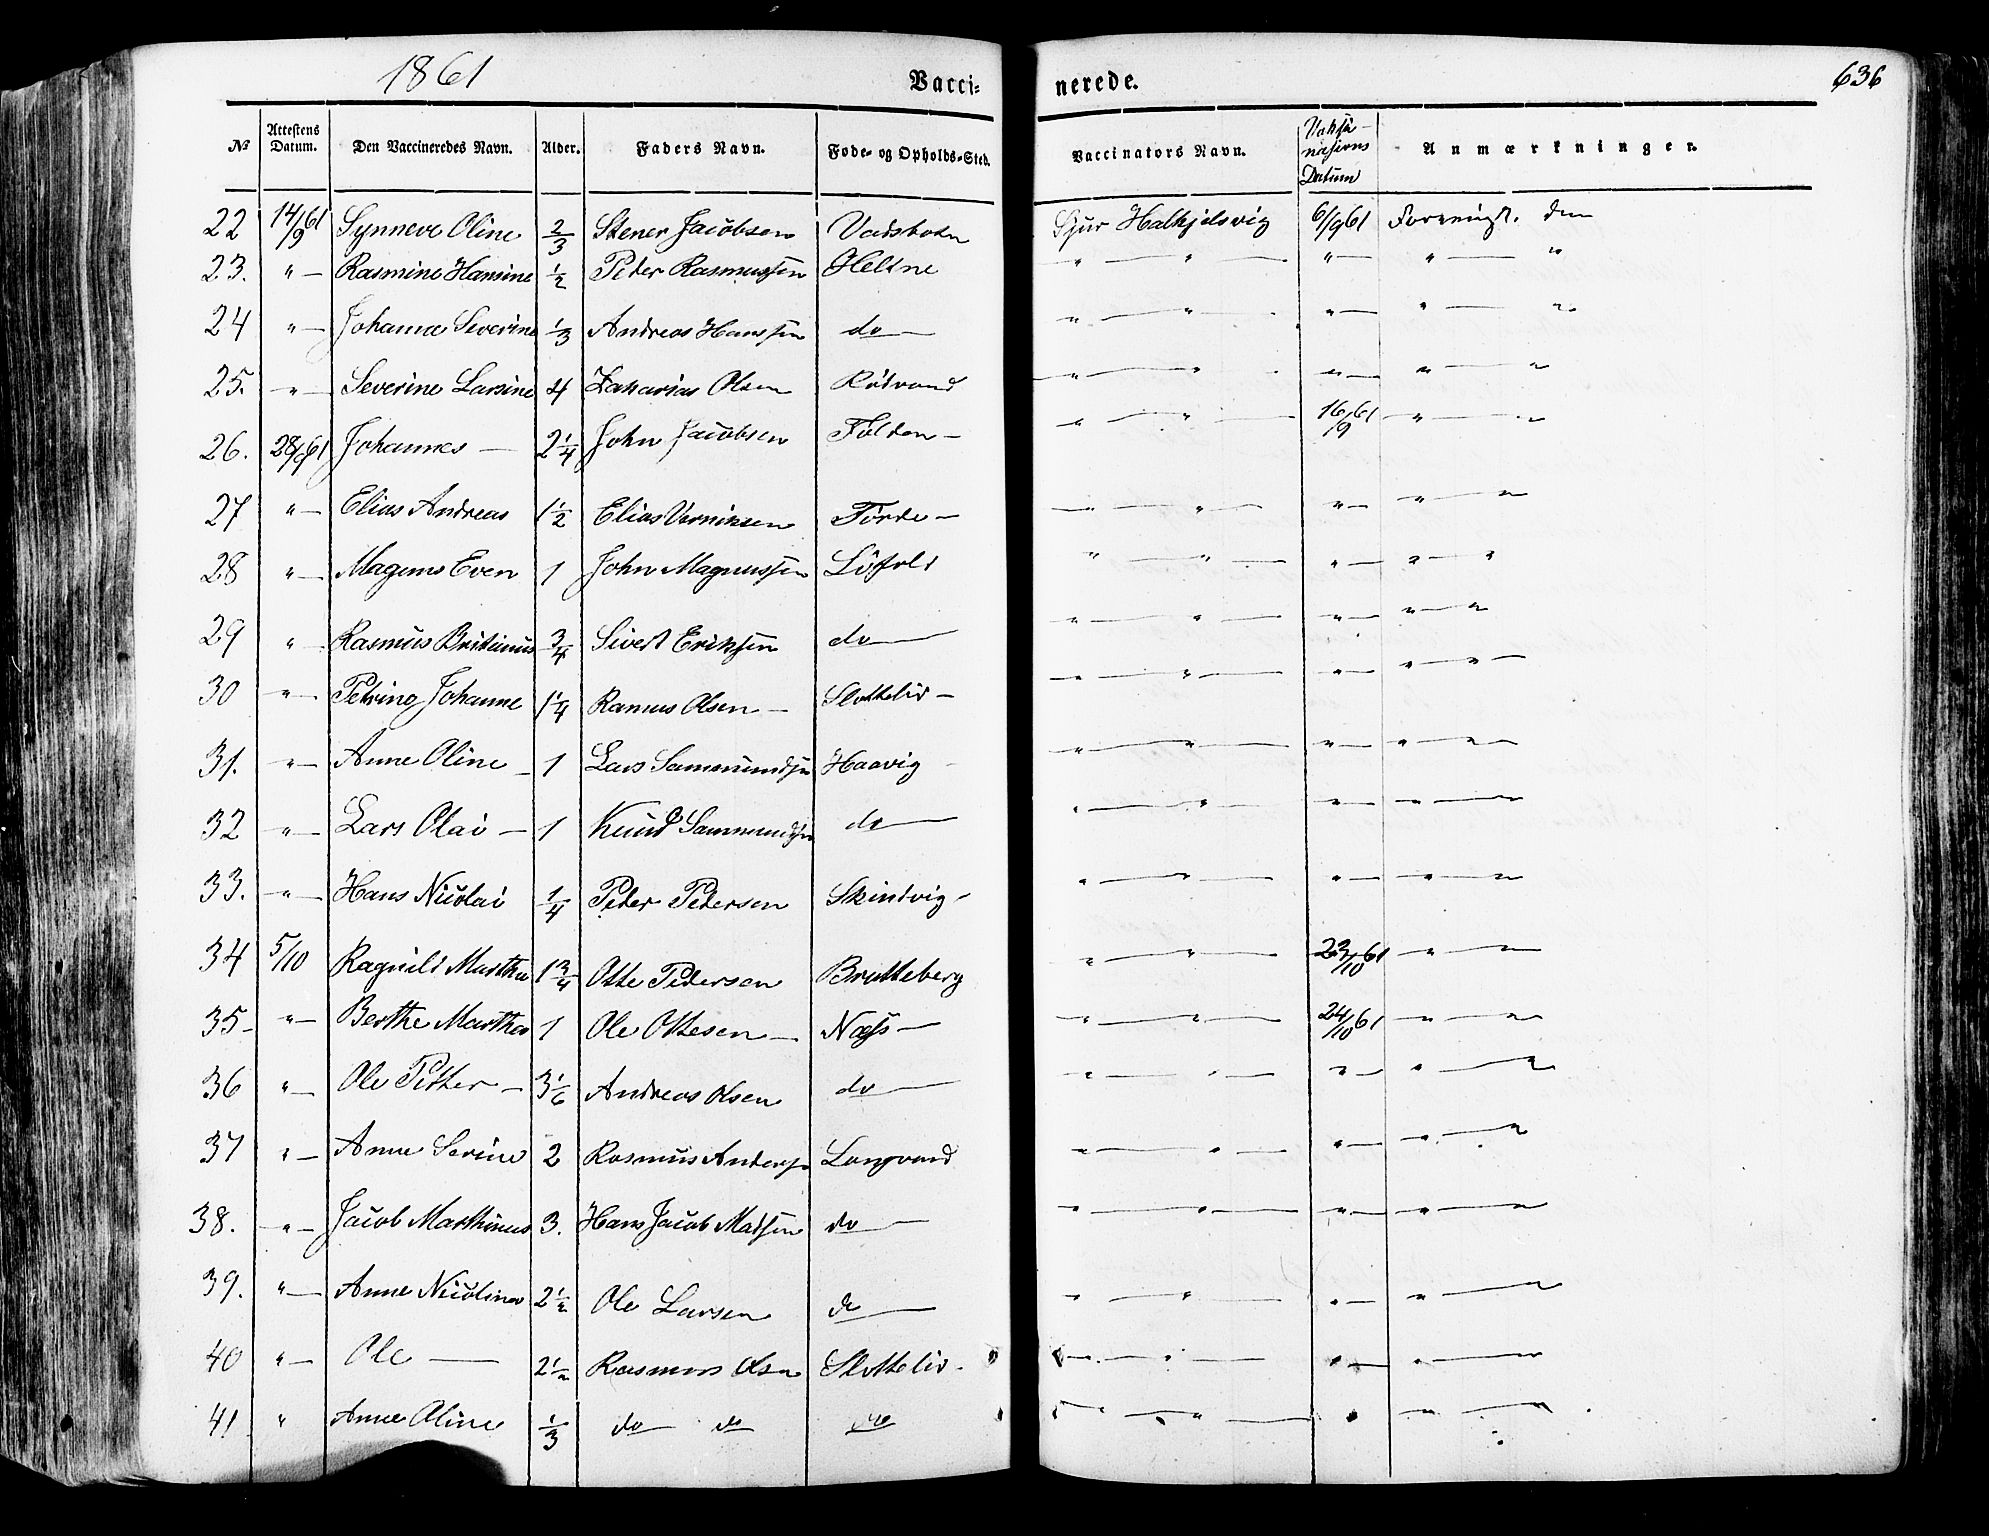 1861
Vacci- nerede. 636
№ Attestens Datum. Den Vaccineredes Navn. Alder. Faders Navn. Føde- og Opholds-Sted. Vaccinators Navn. Vaksinasions Datum Anmærkninger.
22 14/9 61 Synneve Oline 2/3 Stener Jacobsen Vadsboten Sjur Halkjelsvig 6/9 61 den
23. " — Rasmine Hansine 1/2 Peder Rasmussen Heltne " — " — " — " — "
24 " — Johanne Severine 1/3 Andreas Hanssen do — " — " " — " — "
25. " — Severine Larsine 4 Zakarias Olsen Rötvand " — " " — " — "
26. 28/9 61 Johannes — 2 1/4 John Jacobsen Folden — " — " — 16/9 61 " — "
27 " — Elias Andreas 1 1/2 Elias Verniksen Förde — " — " — " — " — "
28 " — Magnus Even 1 John Magnussen Löfold " — " — " — " — "
29 " — Rasmus Kristianus 3/4 Sivert Eriksen do — " — " — " — " — "
30 " — Petrine Johanne 1 1/4 Rasmus Olsen — Slottelid — " — " — " — " — " —
31. " — Anne Oline — 1 Lars Sammundsen Haavig " — " — " — " — "
32 " — Lars Olai — 1 Knud Sammundsen do — " — " — " — " — "
33. " — Hans Nicolai 1/4 Peder Pedersen Skintvig — " — " — " — " — "
34 5/10 Ragnild Martha 1 3/4 Otte Pedersen Brutteberg " — " — 23/10 61 " — "
35 - " — Berthe Martha 1 Ole Ottesen — Næss — " — " — 24/10 61 " — "
36 " — Ole Petter — 3 1/6 Andreas Olsen do — " — " — " — " — "
37 " — Anne Serine 2 Rasmus Andersen Langvand " — " — " — " — "
38. " — Jacob Marthinus 3. Hans Jacob Madsen do — " — " — " — " — "
39. " — Anne Nicoline 2 1/2 Ole Larsen do — " — " — " — " — "
40 " — Ole — 2 1/2 Rasmus Olsen Slottelid - " — " — " — " — "
41 " Anne Oline 1/3 do — do — do " — " — " " — "